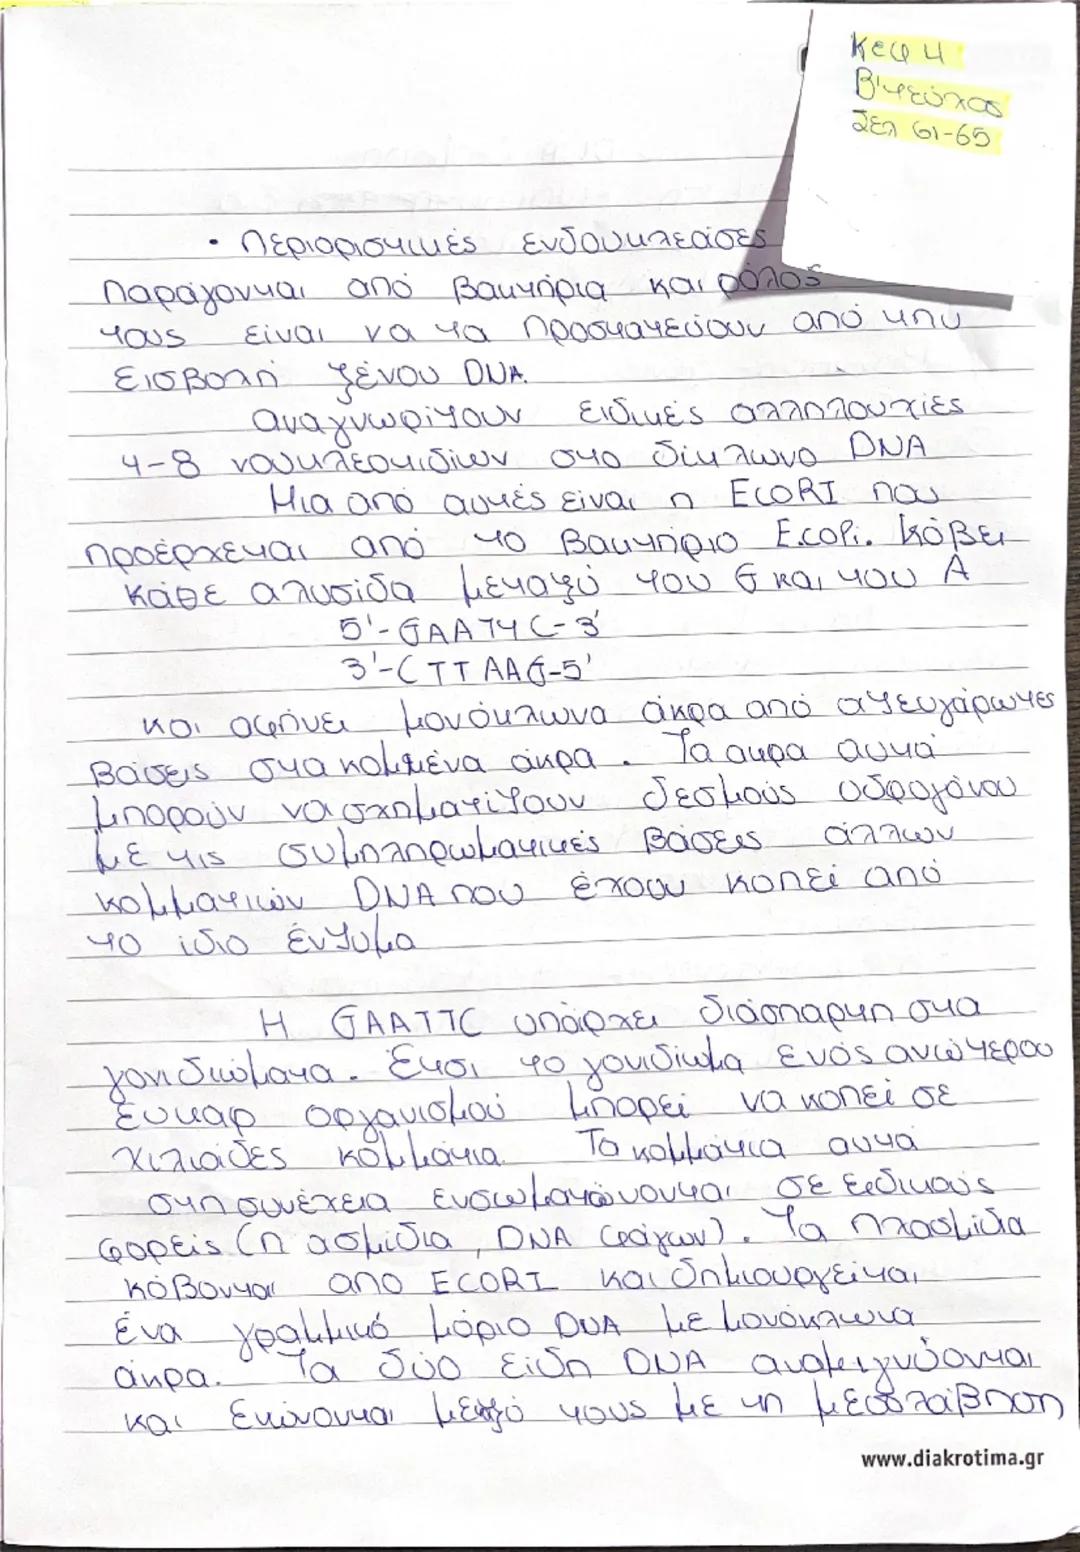 Κεφ 4
Β' τεύχος
Σελ 61-65
• Περιοριστικές ενδουκλεάσες
Παράγονται από βακτήρια και ρόλος
τους είναι να τα προστατεύουν από την
εισβολή ξένου DNA.
Αναγνωρίζουν ειδικές αλληλουχίες
4-8 νουκλεοτιδίων στο δίκλωνο DNA
Μια από αυτές είναι η EcoRI που
προέρχεται από το βακτήριο E.coli. Κόβει
κάθε αλυσίδα μεταξύ του G και του A
5'-GAATTC-3'
3'-CTTAAG-5'
και αφήνει μονόκλωνα άκρα από αζευγάρωτες
βάσεις στα κομμένα άκρα. Τα ακρα αυτά
μπορούν να σχηματίζουν δεσμούς υδρογόνου
με τις συμπληρωματικές βάσεις άλλων
κομματιών DNA που έχουν κοπεί από
το ίδιο ένζυμο
Η GAATTC υπάρχει διάσπαρτη στα
γονιδιώματα. Έτσι το γονιδίωμα ενός ανώτερου
ευκαρ οργανισμού μπορεί να κοπεί σε
χιλιάδες κομμάτια. Τα κομμάτια αυτά
στη συνέχεια ενσωματώνονται σε ειδικούς
φορείς (πλασμίδια, DNA φάγων). Τα πλασμίδια
κόβονται από ECORI και δημιουργείται
ένα γραμμικό μόριο DNA με μονόκλωνα
άκρα. Τα δύο είδη DNA αναμειγνύονται
και ενώνονται μεταξύ τους με τη μεσολάβηση
www.diakrotima.gr